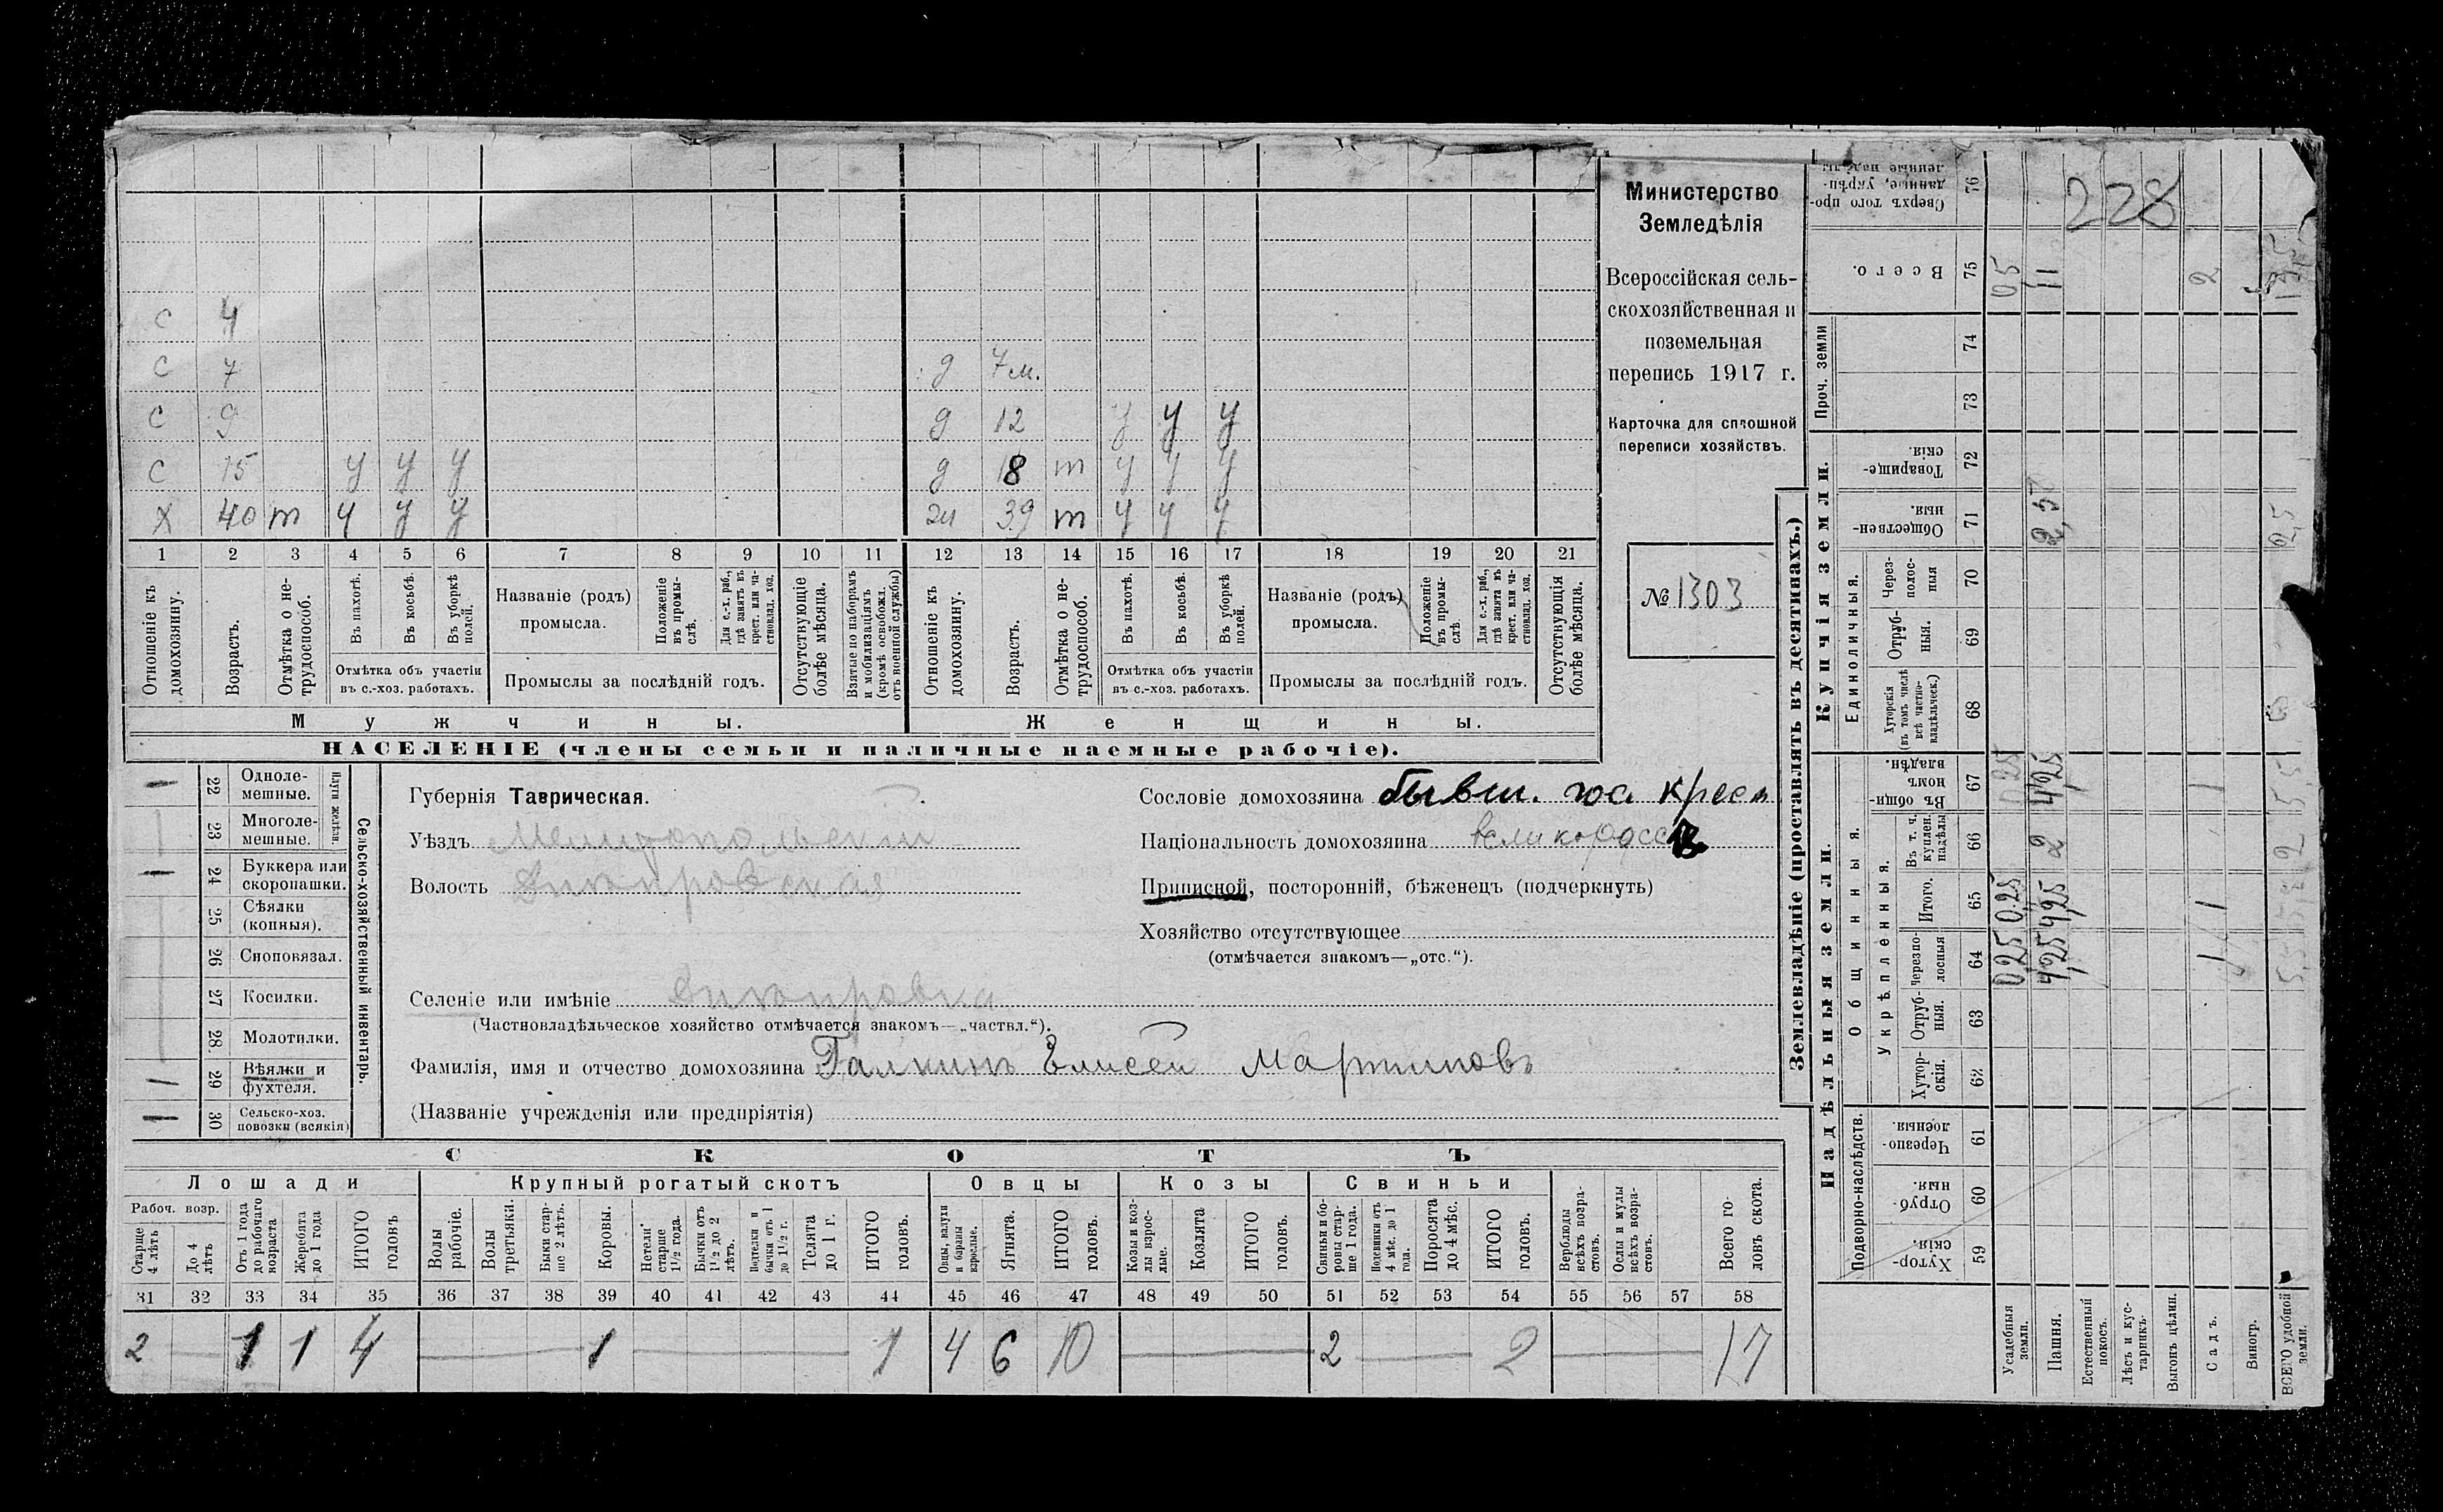 с 4
с 7 д 7 м.
с 9 д 12 у у у
с 15 у у у д 18 т у у у
х 40 т у у у 39 т у у у
1 2 3 4 5 6 7 8 9 10 11 12 13 14 15 16 17 18 19 20 21
Отношеніе къ домохозяину.
Возрастъ.
Отмѣтка о нетрудоспособ.
Въ пахотѣ.
Въ косьбѣ.
Въ уборкѣ полей.
Отмѣтка объ участіи
въ с.-хоз. работахъ.
Названіе (родъ)
промысла.
Положеніе въ промыслѣ.
Для с.-х. раб., гдѣ занятъ въ крест. или частновлад. хоз.
Промыслы за послѣдній годъ.
Отсутствующіе болѣе мѣсяца.
Взятые по наборамъ и мобилизаціямъ (кромѣ освобожд. отъ военной службы)
Отношеніе къ домохозяину.
Возрастъ.
Отмѣтка о нетрудоспособ.
Въ пахотѣ.
Въ косьбѣ.
Въ уборкѣ полей.
Отмѣтка объ участіи
въ с.-хоз. работахъ.
Названіе (родъ)
промысла.
Положеніе въ промыслѣ.
Для с.-х. раб., гдѣ занята въ крест. или частновлад. хоз.
Промыслы за послѣдній годъ.
Отсутствующія болѣе мѣсяца.
Мужчины.
Женщины.
НАСЕЛЕНІЕ (члены семьи и наличные наемные рабочіе).
Министерство
Земледѣлія
Всероссійская сель-
скохозяйственная и
поземельная
перепись 1917 г.
Карточка для сплошной
переписи хозяйствъ.
№ 1303
Сельско-хозяйственный инвентарь.
Плуги желѣзн.
1 22 Одноле-
мешные.
23 Многоле-
мешные.
1 24 Буккера или
скоропашки.
25 Сѣялки
(конныя).
26 Сноповязал.
27 Косилки.
28 Молотилки.
1 29 Вѣялки и
фухтеля.
1 30 Сельско-хоз.
повозки (всякія)
Губернія Таврическая.
Уѣздъ Мелитопольскій
Волость Днѣпровская
Селеніе или имѣніе Днѣпровка
(Частновладѣльческое хозяйство отмѣчается знакомъ—„частвл.“).
Фамилія, имя и отчество домохозяина Галкинъ Елисей Мартиновъ
(Названіе учрежденія или предпріятія)
Сословіе домохозяина бывш. гос крест
Національность домохозяина великоросс
Приписной, посторонній, бѣженецъ (подчеркнуть)
Хозяйство отсутствующее
(отмѣчается знакомъ—„отс.“).
СКОТЪ
Лошади Крупный рогатый скотъ Овцы Козы Свиньи
Рабоч. возр.
Старше 4 лѣтъ
До 4 лѣтъ
Отъ 1 года до рабочаго возраста
Жеребята до 1 года
ИТОГО головъ
Волы рабочіе.
Волы третьяки.
Быки старше 2 лѣтъ.
Коровы.
Нетели старше 1½ года.
Бычки отъ 1½ до 2 лѣтъ.
Подтелки и бычки отъ 1 до 1½ г.
Телята до 1 г.
ИТОГО головъ.
Овцы, валухи и бараны взрослые.
Ягнята.
ИТОГО головъ.
Козы и козлы взрослые.
Козлята
ИТОГО головъ.
Свиньи и боровы старше 1 года.
Подсвинки отъ 4 мѣс. до 1 года.
Поросята до 4 мѣс.
ИТОГО головъ.
Верблюды всѣхъ возрастовъ.
Ослы и мулы всѣхъ возрастовъ.
Всего головъ скота.
31 32 33 34 35 36 37 38 39 40 41 42 43 44 45 46 47 48 49 50 51 52 53 54 55 56 57 58
2 — 1 1 4 — 1 — 1 4 6 10 — 2 — 2 — 17
Землевладѣніе (проставлять въ десятинахъ.)
Надѣльныя земли.
Купчія земли.
Проч. земли
Подворно-наслѣдств.
Общинныя.
Укрѣпленныя.
Единоличныя.
Сверхъ того проданные, укрѣпленные надѣлы 76
Всего. 75
74
73
Товарищескія. 72
Общественныя. 71
Черезполосныя 70
Отрубныя. 69
Хуторскія (въ томъ числѣ всѣ частновладѣльческ.) 68
Въ общинномъ владѣн. 67
Въ т. ч. куплен. надѣлы 66
Итого. 65
Черезполосныя 64
Отрубныя. 63
Хуторскія. 62
Черезполосныя. 61
Отрубныя. 60
Хуторскія. 59
Усадебныя земли.
0,25 0,25 0,25 05
Пашня.
4,25 4,25 2 4,25 2,5 11
Естественный покосъ.
Лѣсъ и кустарникъ.
Выгонъ цѣлин.
Садъ.
1 1 1 2
Виногр.
ВСЕГО удобной земли.
5,5 2 5,5 2,5
228